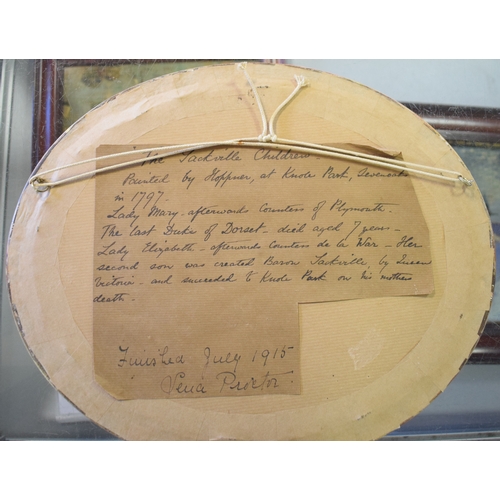 The Sackville Children
Painted by Hoppner, at Knole Park, Sevenoaks
in 1797.
Lady Mary - afterwards Countess of Plymouth.
The last Duke of Dorset - died aged 7 years -
Lady Elizabeth - afterwards Countess de la War - Her
second son was created Baron Sackville, by Queen
Victoria - and succeeded to Knole Park on his mothers
death.
Finished July 1915
Proctor.